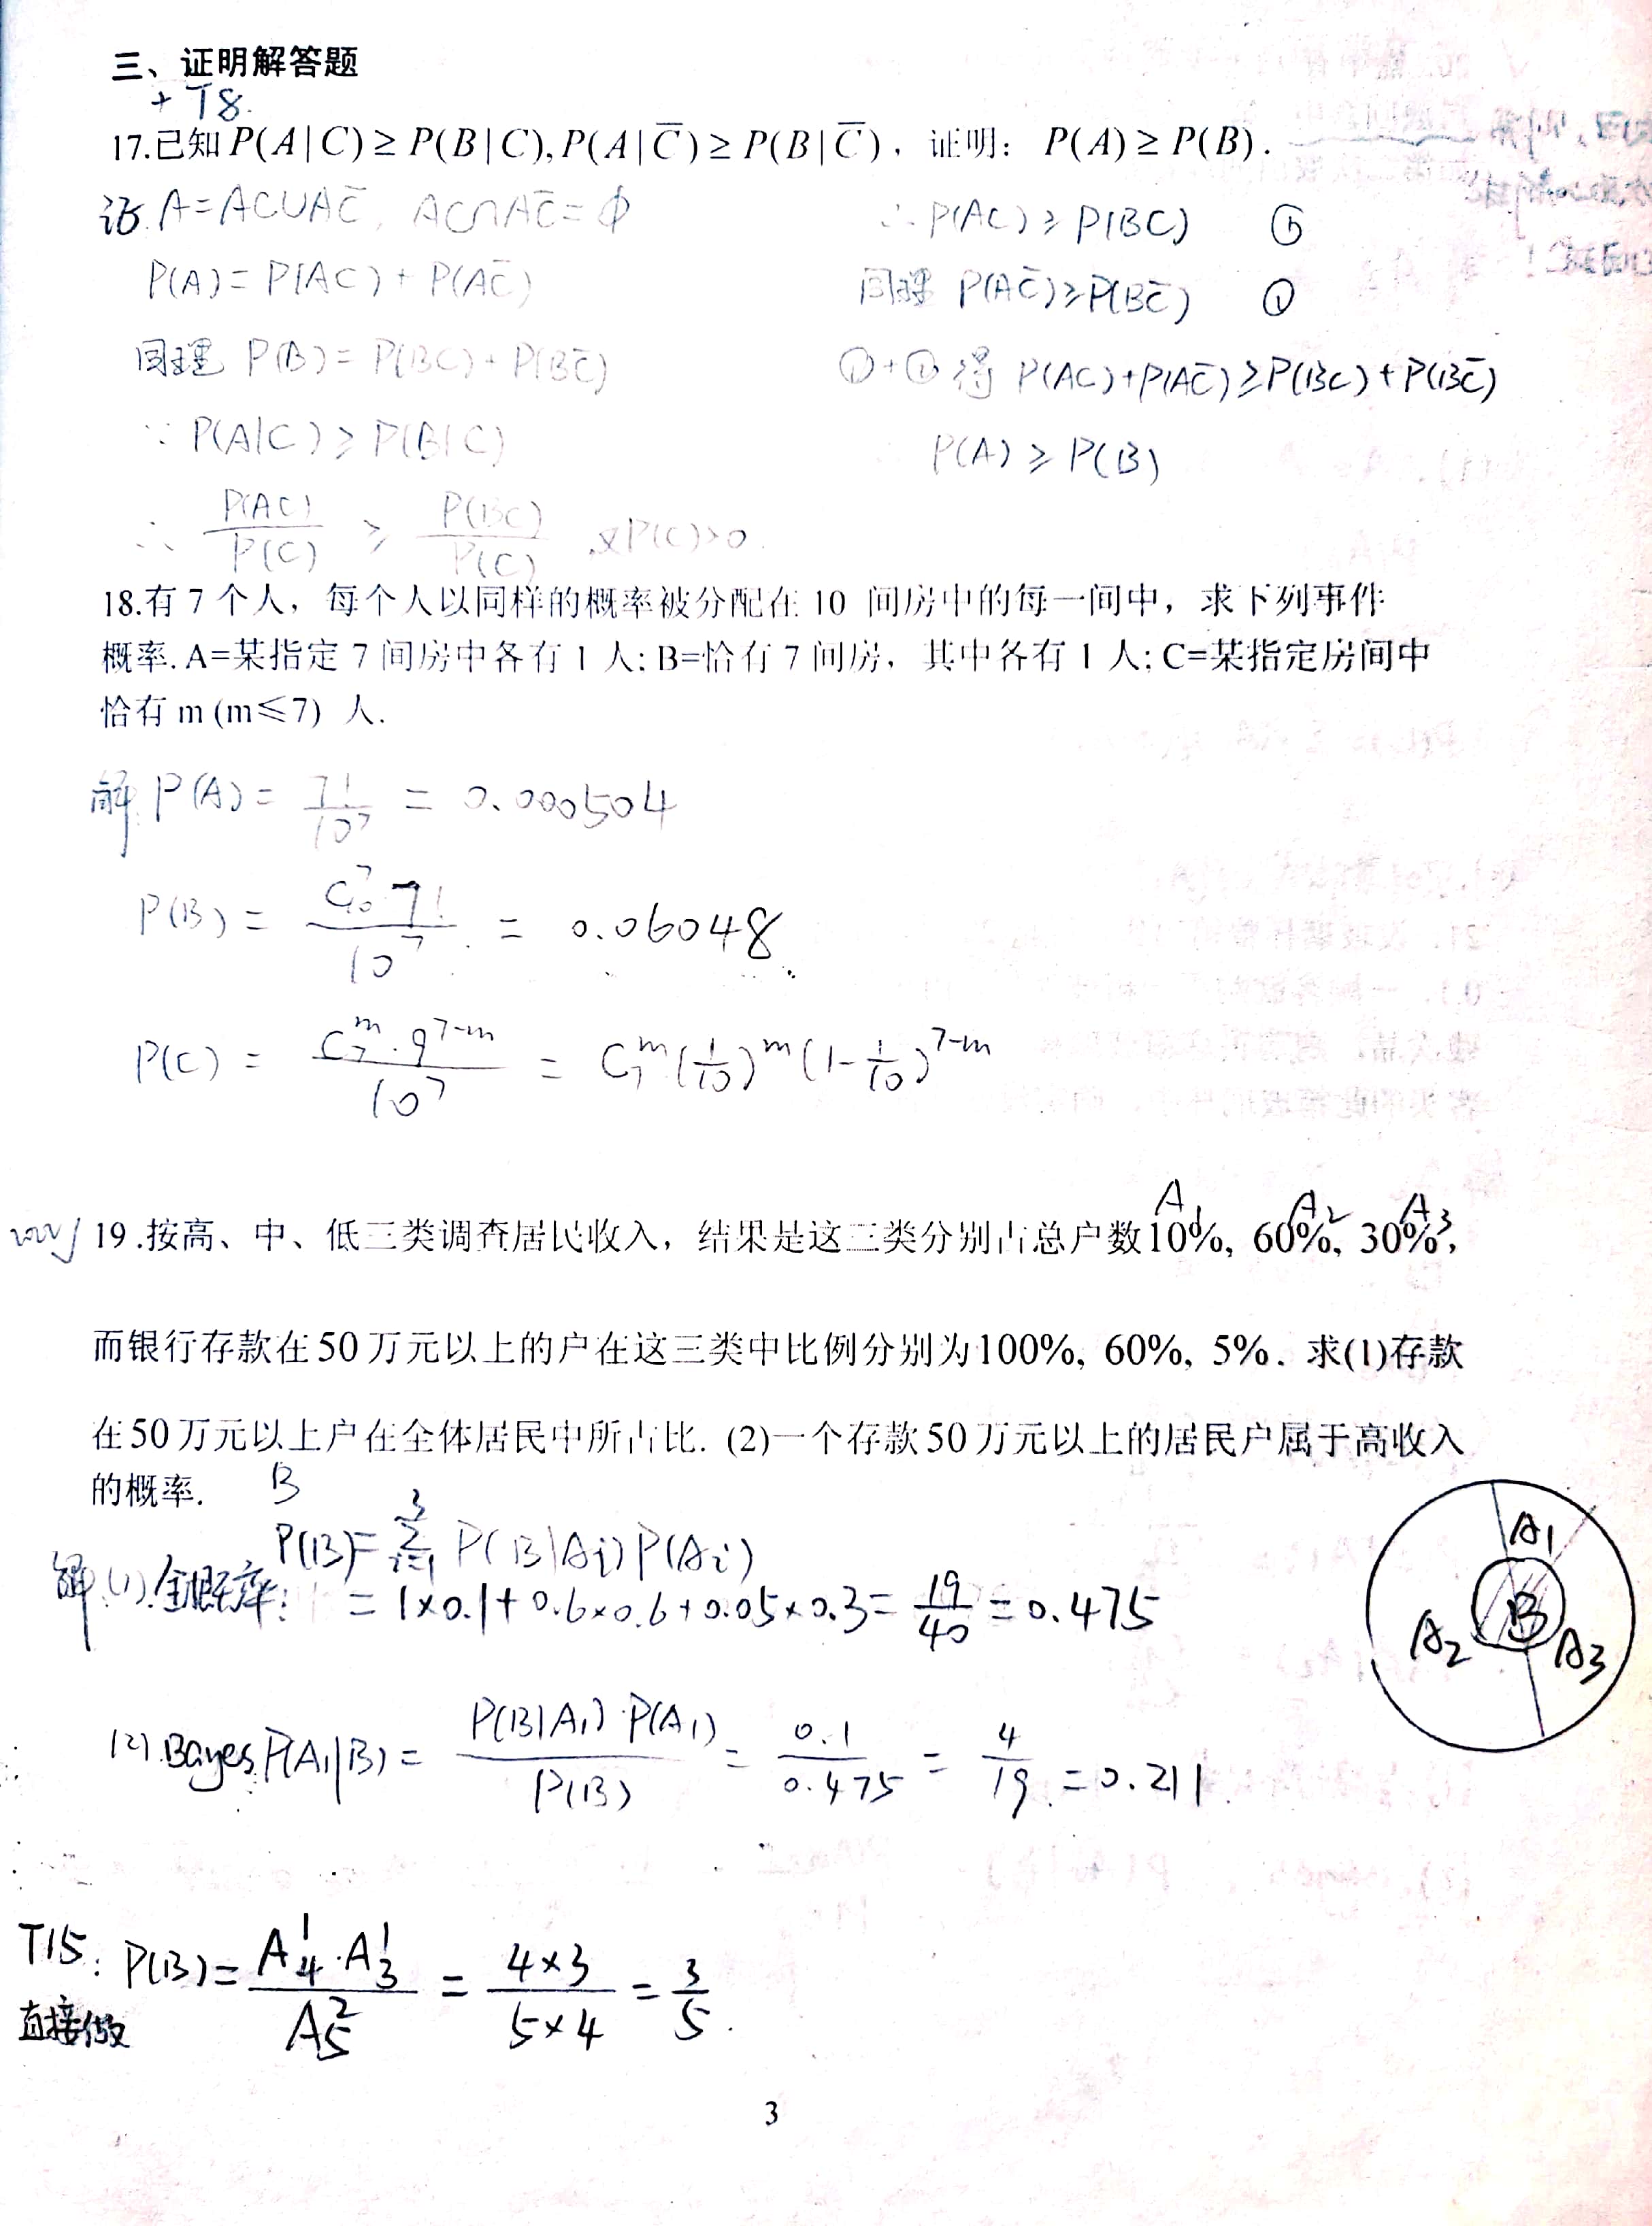 三、证明解答题
+ T8.
17.已知 P(A|C) ≥ P(B|C), P(A|C̅) ≥ P(B|C̅)，证明：P(A) ≥ P(B).
证 A=AC∪AC̅, AC∩AC̅=ϕ
P(A)= P(AC) + P(AC̅)
同理 P(B)= P(BC)+P(BC̅)
∵ P(A|C) ≥ P(B|C)
∴ P(AC)/P(C) ≥ P(BC)/P(C) 又P(C)>0.
∴ P(AC) ≥ P(BC) ①
同理 P(AC̅)≥P(BC̅) ②
①+② 得 P(AC)+P(AC̅)≥P(BC)+P(BC̅)
P(A) ≥ P(B)
18.有 7 个人，每个人以同样的概率被分配在 10 间房中的每一间中，求下列事件
概率. A=某指定 7 间房中各有 1 人; B=恰有 7 间房，其中各有 1 人; C=某指定房间中
恰有 m (m≤7) 人.
解 P(A) = 7!/10⁷ = 0.000504
P(B) = C₁₀⁷·7!/10⁷ = 0.06048
P(C) = C₇ᵐ·9⁷⁻ᵐ/10⁷ = C₇ᵐ(1/10)ᵐ(1-1/10)⁷⁻ᵐ
A₁ A₂ A₃
19.按高、中、低三类调查居民收入，结果是这三类分别占总户数10%, 60%, 30%,
而银行存款在50万元以上的户在这三类中比例分别为100%, 60%, 5%. 求(1)存款
在50万元以上户在全体居民中所占比. (2)一个存款50万元以上的居民户属于高收入
的概率.
B
解.(1).全概率: P(B)=∑³ᵢ₌₁ P(B|Aᵢ)P(Aᵢ)
= 1×0.1+0.6×0.6+0.05×0.3= 19/40 = 0.475
A₁
B
A₂
A₃
(2).Bayes P(A₁|B) = P(B|A₁)·P(A₁)/P(B) = 0.1/0.475 = 4/19 = 0.211.
T15: P(B)= A₄¹·A₃¹/A₅² = 4×3/5×4 = 3/5.
直接做
3